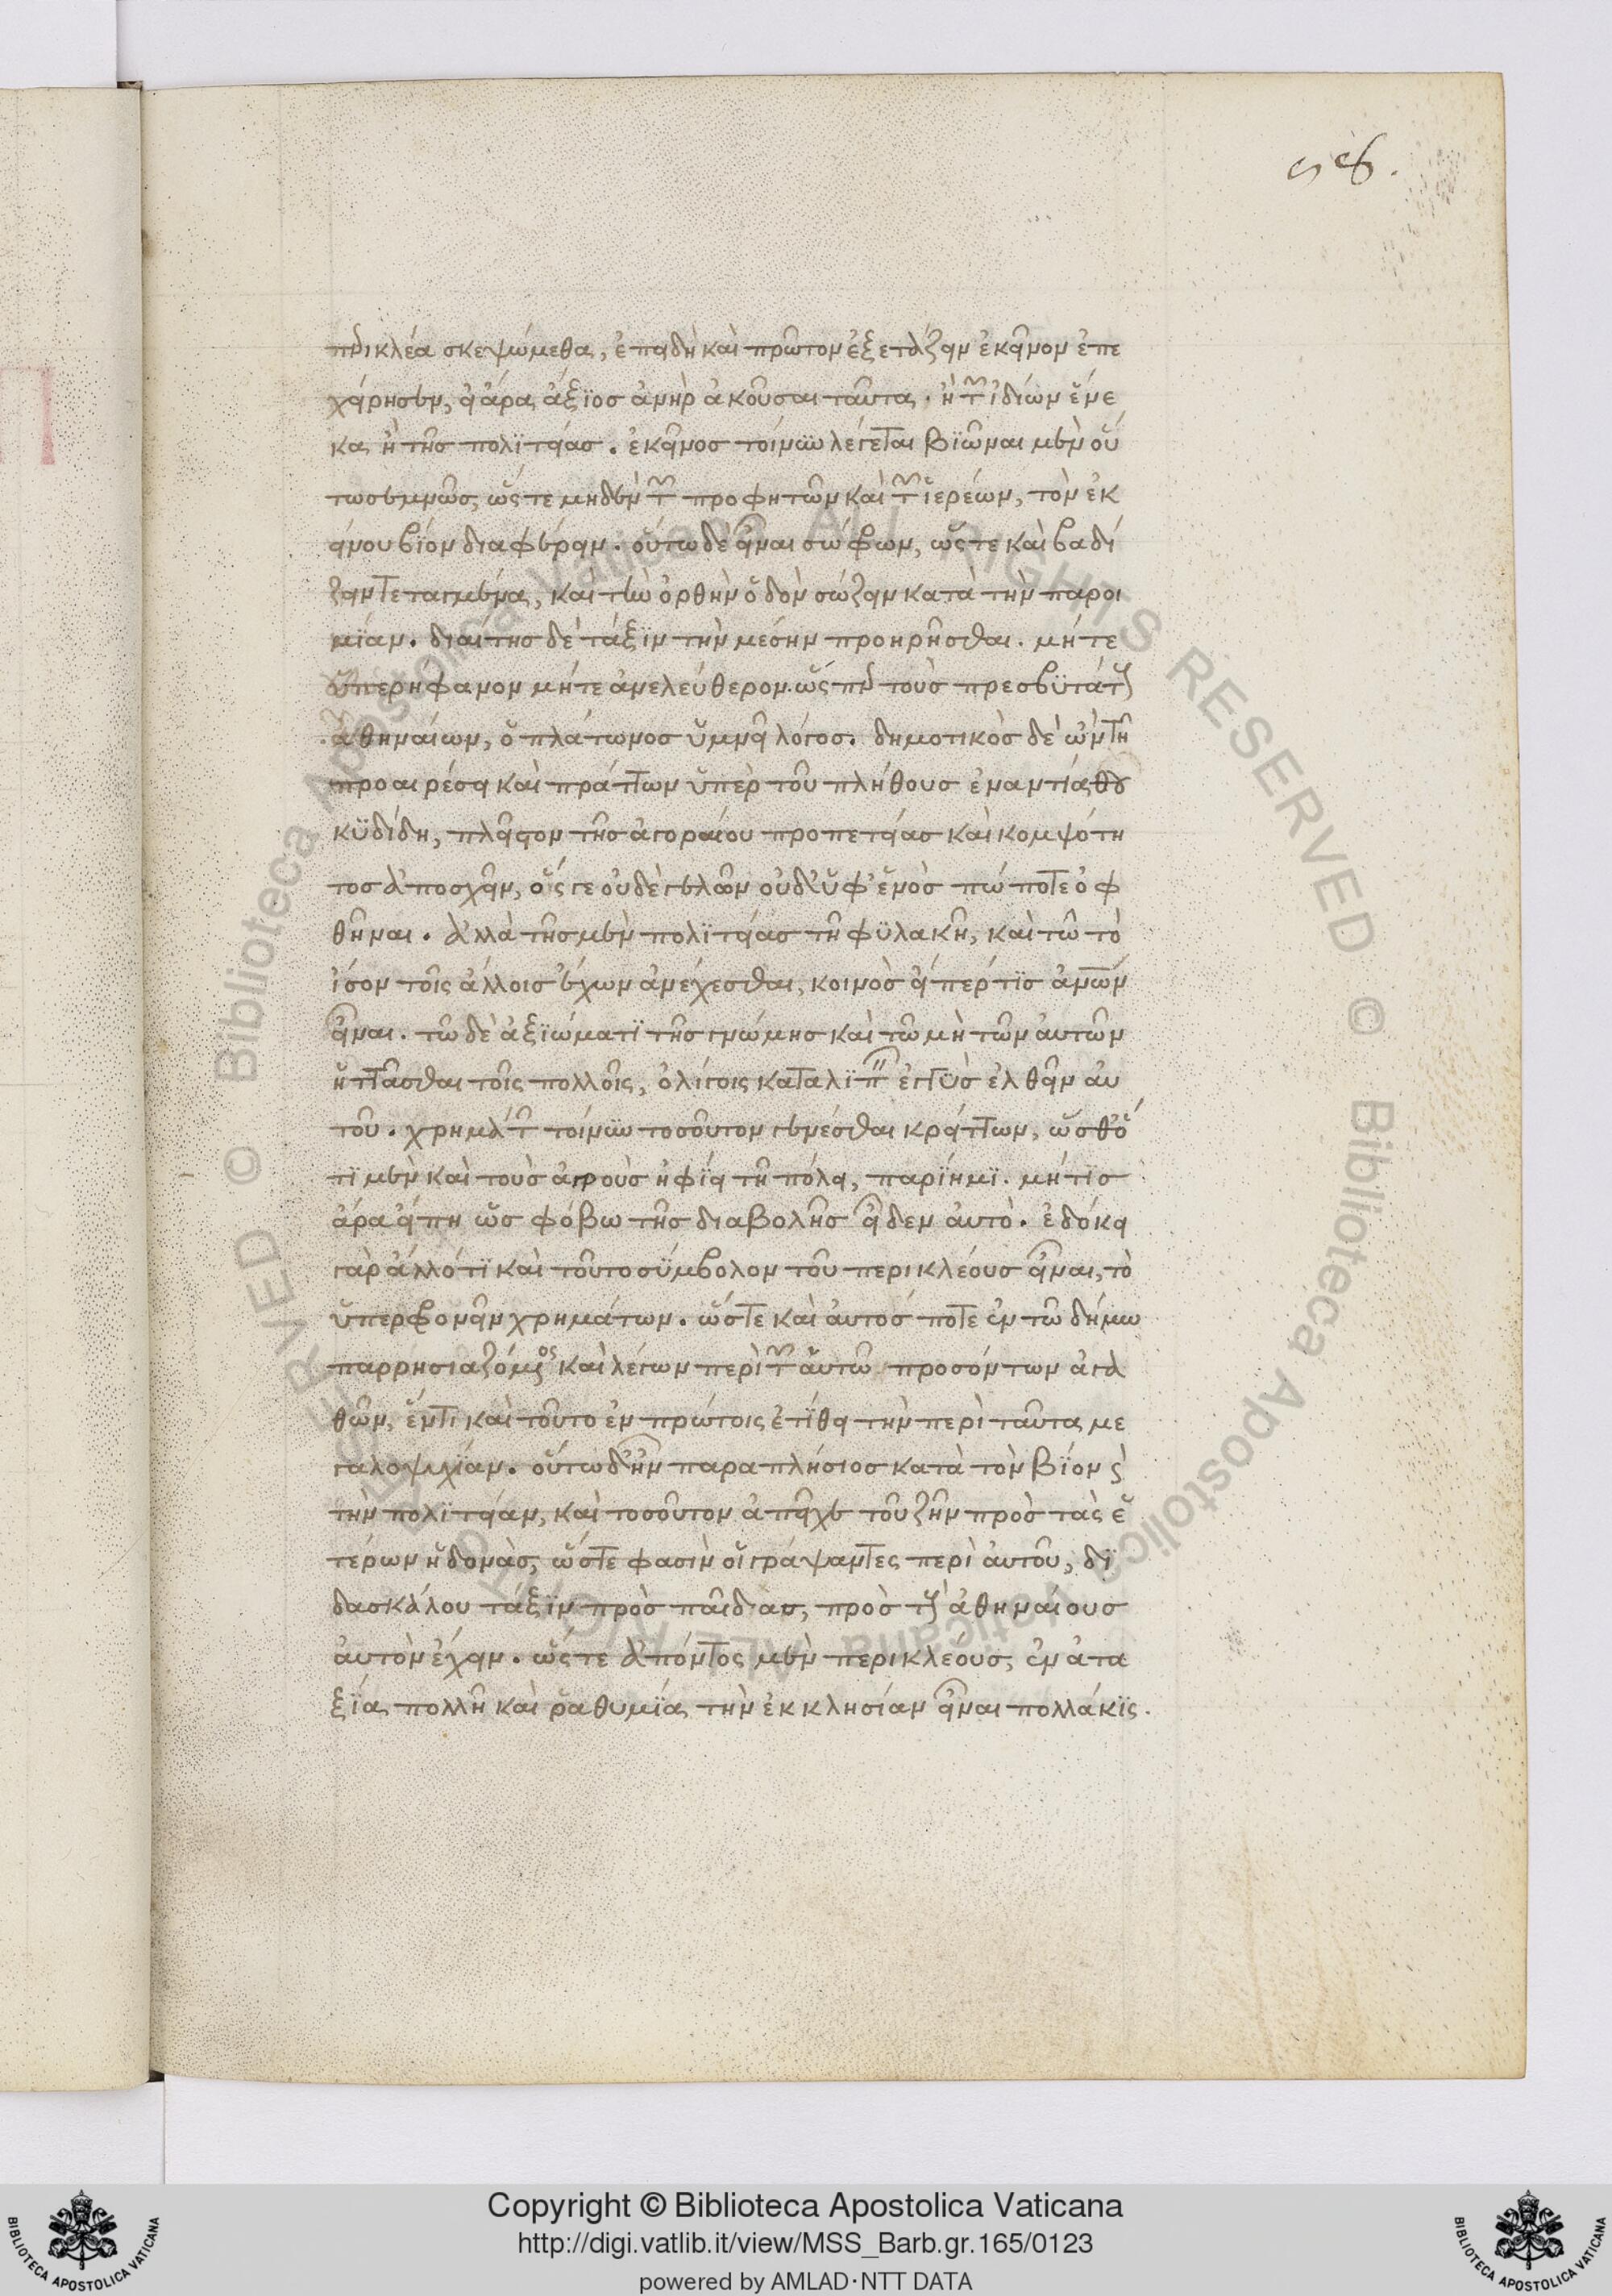 ϟϛ.
περικλέα σκεψώμεθα, ἐπειδὴ καὶ πρῶτον ἐξετάζειν ἐκεῖνον ἐπε
χείρησεν, εἰ ἄρα ἄξϊος ἀνὴρ ἀκοῦσαι ταῦτα. ἢ τῶν ἰδίων ἕνε
κα ἢ τῆς πολϊτείας. ἐκεῖνος τοίνυν λέγεται βϊῶναι μὲν οὕ
τω σεμνῶς, ὥς τε μηδὲν τῶν προφητῶν καὶ τῶν ἱερέων, τὸν ἐκ
είνου βϊον διαφέρειν. οὕτω δὲ εἶναι σώφρων, ὥς τε καὶ βαδί
ζειν τεταγμένα, καὶ τὴν ὀρθὴν ὁδὸν σώζειν κατὰ τὴν παροι
μϊαν. διαίτης δὲ τάξϊν τὴν μέσην προηρῆσθαι. μήτε
ὑπερήφανον μήτε ἀνελεύθερον. ὥσπερ τοὺς πρεσβϋτάτους
ἀθηναίων, ὁ πλάτωνος ὑμνεῖ λόγος. δημοτικὸς δὲ ὢν τῆ
προαιρέσει καὶ πράττων ὑπὲρ τοῦ πλήθους ἐναντία θου
κϋδίδη, πλεῖστον τῆς ἀγοραίου προπετείας καὶ κομψότη
τος ἀποσχεῖν, ὅς γε οὐδὲ γελῶν οὐδ' ὑφ' ἑνὸς πώποτε ὀφ
θῆναι. ἀλλὰ τῆς μὲν πολϊτείας τῆ φϋλακῆ, καὶ τῶ τὸ
ἴσον τοῖς ἄλλοις ἔχων ἀνέχεσθαι, κοινὸς εἴπερ τϊς ἀνθρώπων
εἶναι. τῶ δὲ ἀξϊώματϊ τῆς γνώμης καὶ τῶ μὴ τῶν ἀυτῶν
ἡττᾶσθαι τοῖς πολλοῖς, ὀλίγοις καταλϊπεῖν ἐγγϋς ἐλθεῖν ἀυ
τοῦ. χρημάτων τοίνυν τοσοῦτον γενέσθαι κρείττων, ὥσθ' ὅ
τϊ μὲν καὶ τοὺς ἀγροὺς ἠφϊει τῆ πόλει, παρϊημϊ. μήτϊς
ἄρα εἴπη ὡς φόβω τῆς διαβολῆς εἶδεν ἀυτὸ. ἐδόκει
γὰρ ἄλλό τϊ καὶ τοῦτο σϋμβολον τοῦ περικλέους εἶναι, τὸ
ὑπερφρονεῖν χρημάτων. ὥστε καὶ ἀυτοσ ποτε ἐν τῶ δήμω
παρρησιαζόμενος καὶ λέγων περὶ τῶν ἀυτῶ προσόντων ἀγα
θῶν, ἕν τι καὶ τοῦτο ἐν πρώτοις ἐτϊθει τὴν περὶ ταῦτα με
γαλοψυχϊαν. οὕτω δ' ἦν παραπλήσιος κατὰ τὸν βϊον καὶ
τὴν πολϊτείαν, καὶ τοσοῦτον ἀπεῖχε τοῦ ζῆν πρὸς τὰς ἑ
τέρων ἡδονὰς, ὥστε φασὶν οἱ γράψαντες περὶ ἀυτοῦ, δϊ
δασκάλου τάξϊν πρὸς παῖδας, πρὸς τοὺς ἀθηναίους
ἀυτὸν ἔχειν. ὥς τε ἀπόντος μὲν περικλέους, ἐν ἀτα
ξϊα πολλῆ καὶ ῥαθυμϊα τὴν ἐκκλησίαν εἶναι πολλάκϊς.
Copyright © Biblioteca Apostolica Vaticana
http://digi.vatlib.it/view/MSS_Barb.gr.165/0123
powered by AMLAD·NTT DATA